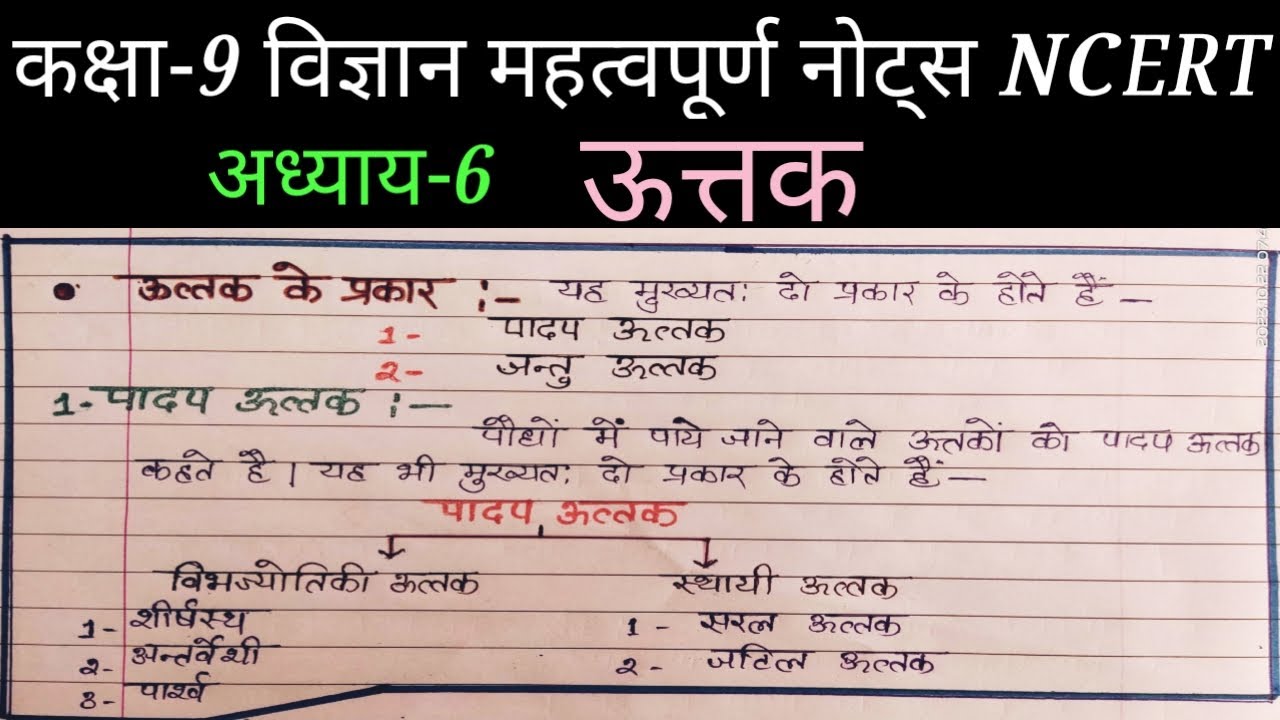 कक्षा-9 विज्ञान महत्वपूर्ण नोट्स NCERT
अध्याय-6 ऊत्तक
• ऊत्तक के प्रकार :- यह मुख्यतः दो प्रकार के होते हैं —
1- पादप ऊत्तक
2- जन्तु ऊत्तक
1- पादप ऊत्तक :—
पौधों में पाये जाने वाले ऊतकों को पादप ऊत्तक
कहते है। यह भी मुख्यतः दो प्रकार के होते हैं —
पादप ऊत्तक
विभज्योतिकी ऊत्तक स्थायी ऊत्तक
1- शीर्षस्थ 1- सरल ऊत्तक
2- अन्तर्वेशी 2- जटिल ऊत्तक
3- पार्श्व